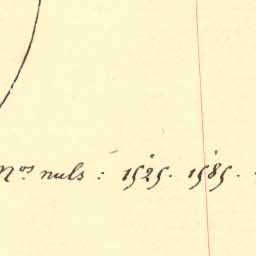 Nos nuls : 1525. 1585.